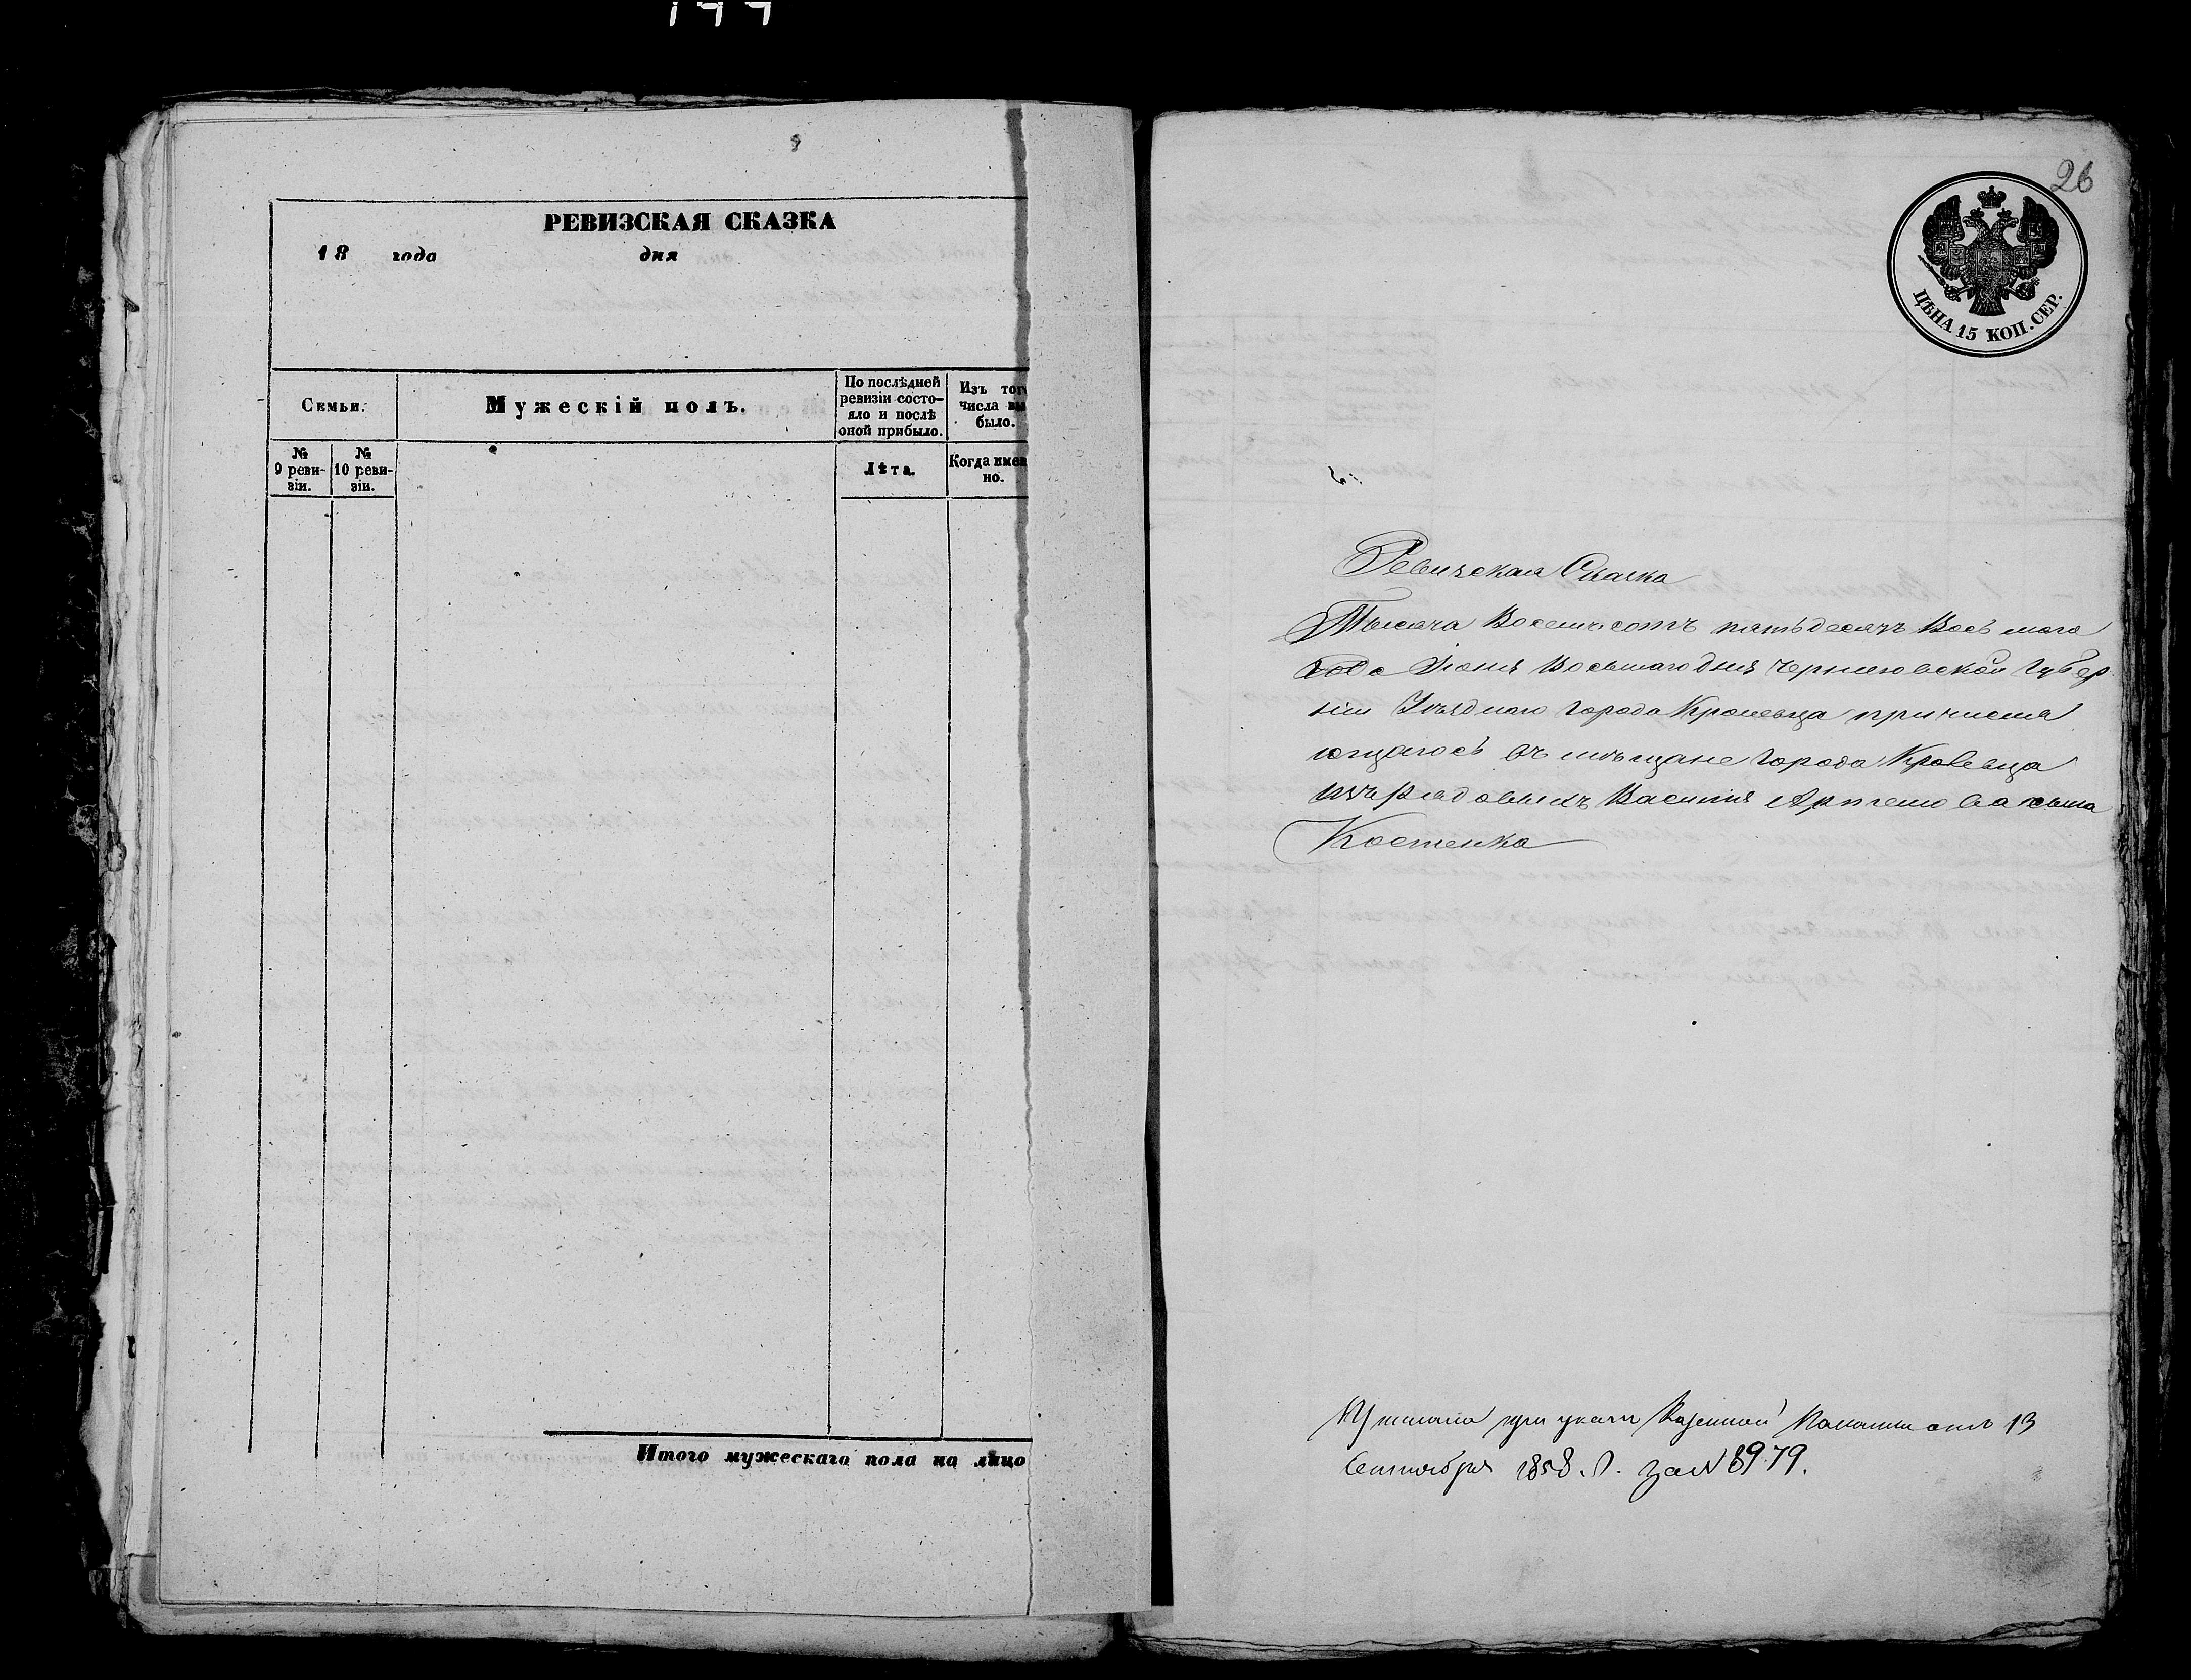 РЕВИЗСКАЯ СКАЗКА
18 года дня
Семьи.
Мужескій полъ.
По послѣдней
ревизіи состо-
яло и послѣ
оной прибыло.
Изъ того
числа вы
было.
№
9 реви-
зіи.
№
10 реви-
зіи.
Лѣта.
Когда имен
но.
Итого мужескаго пола на лицо
26
ЦѢНА 15 КОП. СЕР.
Ревизская Сказка
Тысяча Восемьсотъ пятьдесятъ Восьмаго
года Іюня Восьмаго дня Черниговской Губер
ніи Уѣзднаго города Кролевца причисля
ющагось въ мѣщане города Кролевца
изъ рядовыхъ Василія Артемова сына
Костенка
при указѣ Казенной Палаты отъ 13
Сентября 1858. г. за № 8979.